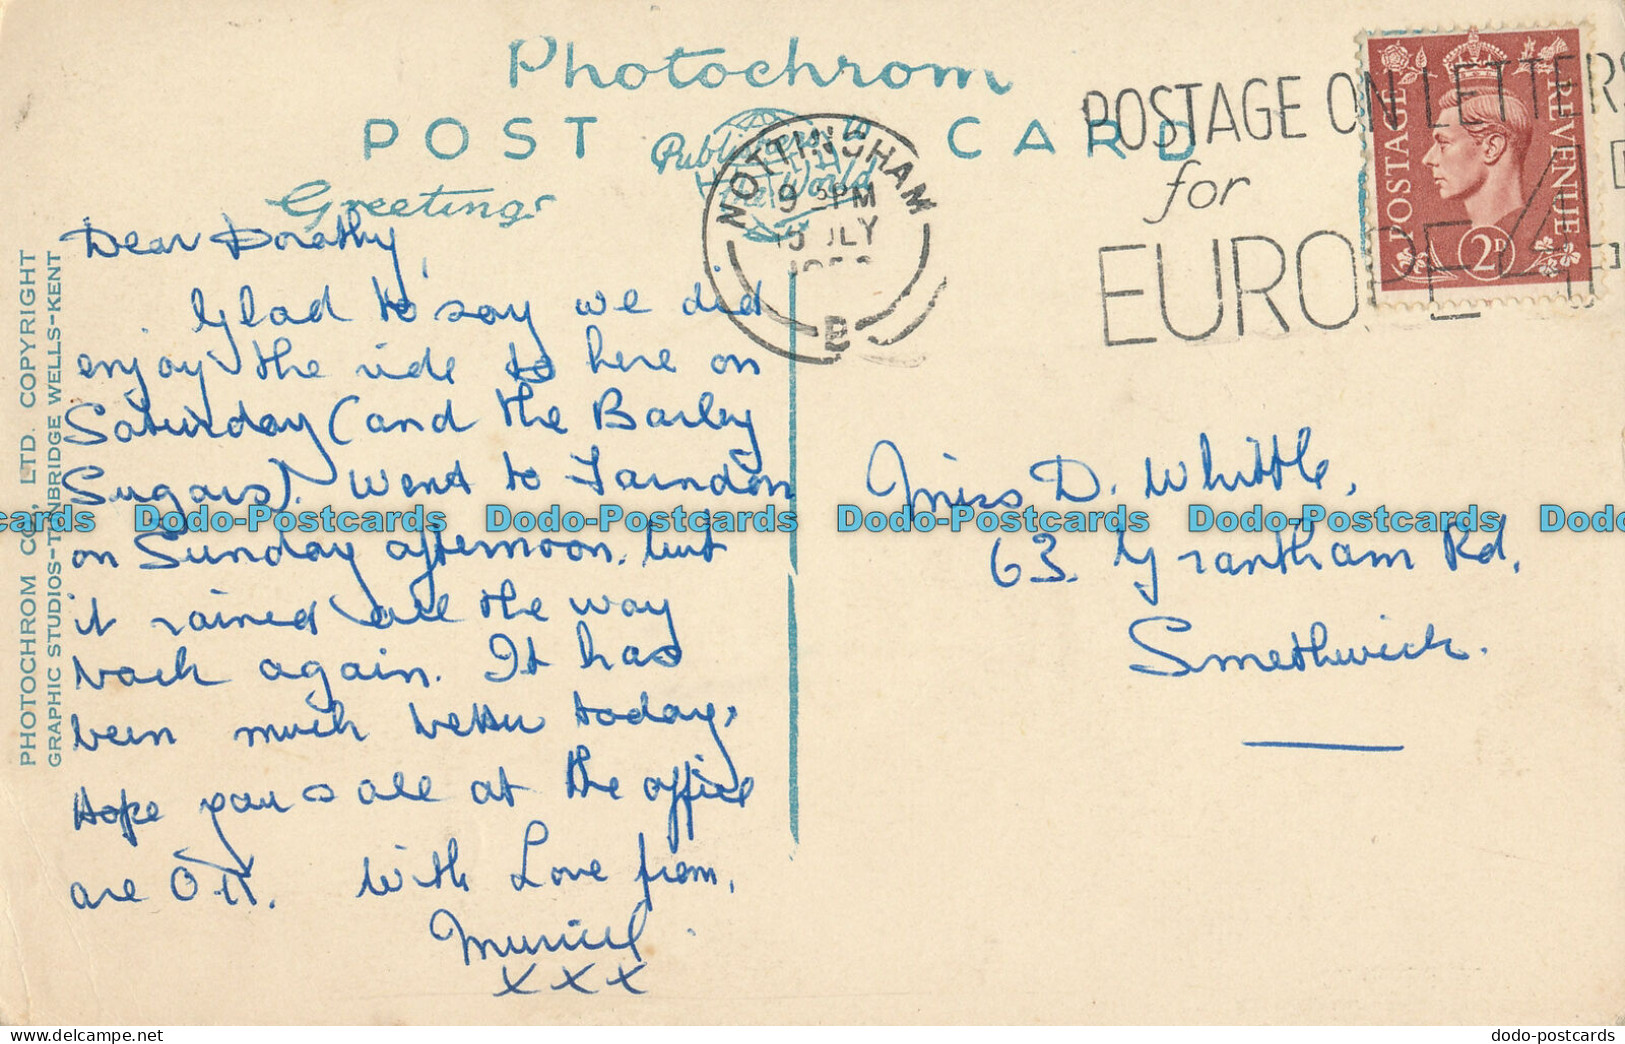 Photochrom
POST CARD
Publishers to
the World
Greetings
NOTTINGHAM
9 PM
15 JLY
B
POSTAGE ON LETTERS
for
EUROPE 4
POSTAGE
REVENUE
2D
Dear Dorothy,
Glad to say we did
enjoy the ride to here on
Saturday (and the Barley
Sugars). Went to Farndon
on Sunday afternoon, but
it rained all the way
back again. It has
been much better today.
Hope you & all at the office
are O.K. With Love from,
Muriel.
XXX
Miss D. Whittle,
63. Grantham Rd,
Smethwick.
PHOTOCHROM CO., LTD. COPYRIGHT
GRAPHIC STUDIOS-TUNBRIDGE WELLS-KENT
cards Dodo-Postcards Dodo-Postcards Dodo-Postcards Dodo-Postcards Dodo
dodo-postcards